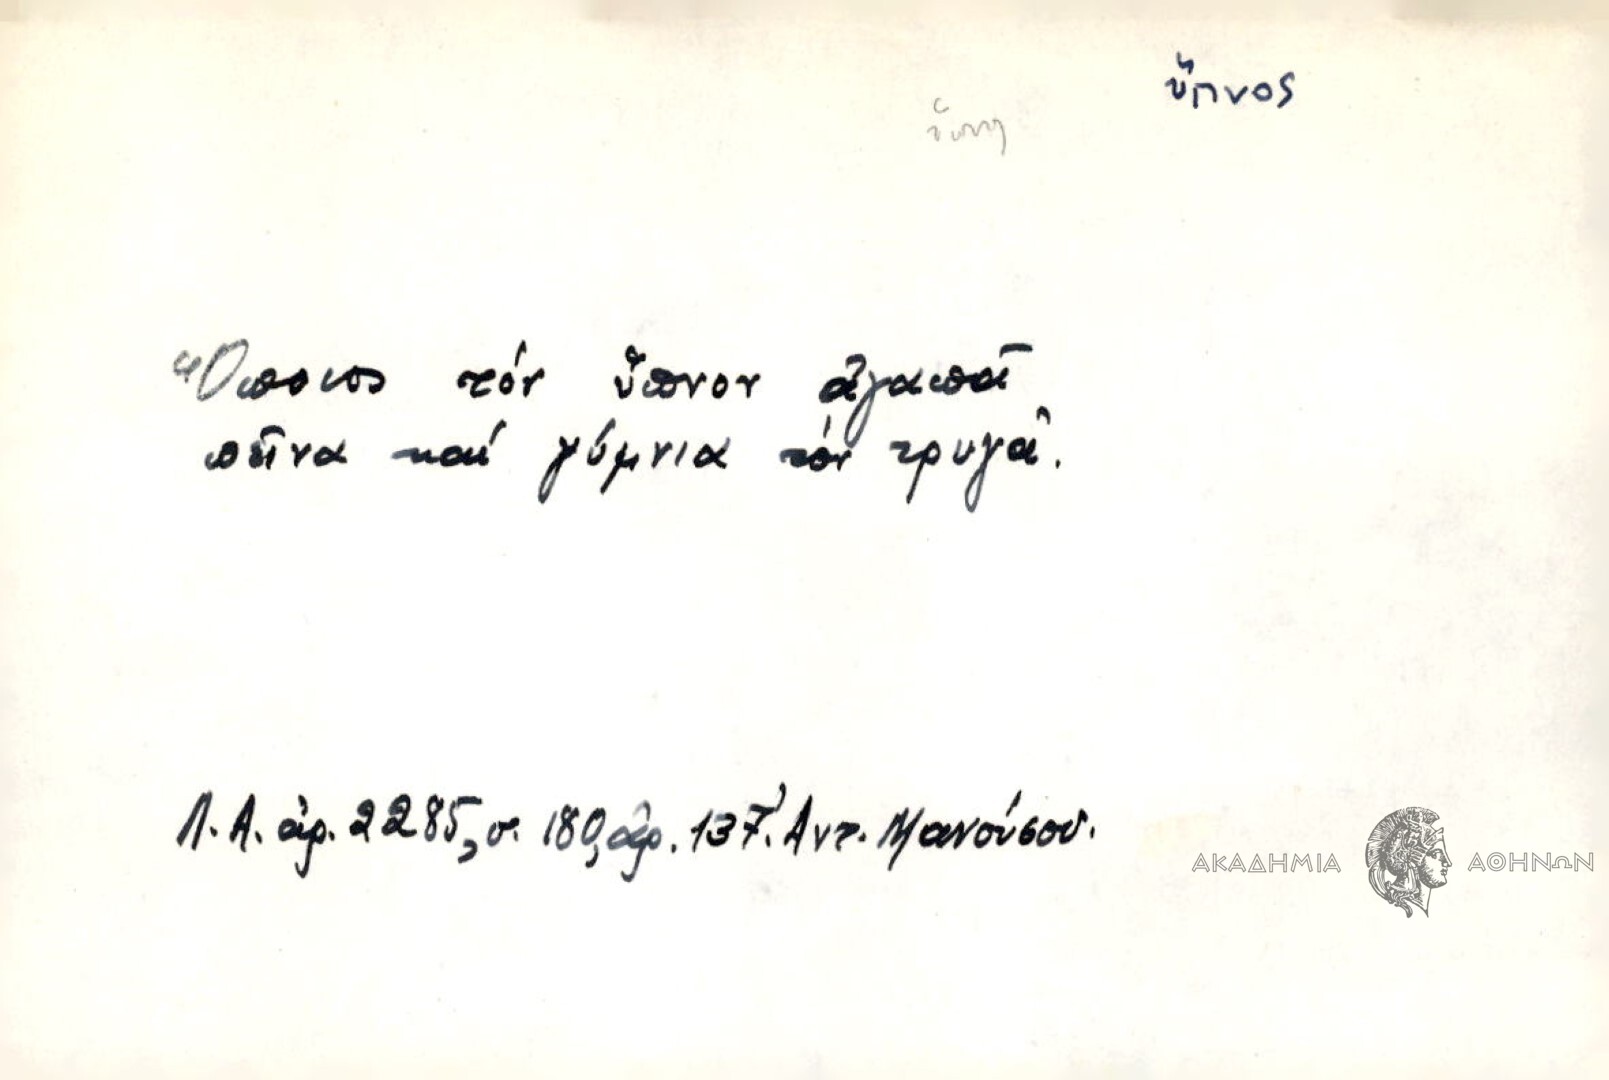 ὕπνος
Ὅποιος τόν ὕπνον ἀγαπᾶ
πεῖνα καί γύμνια τόν τρυγᾶ.
Λ.Α. ἀρ. 2285, σ. 180, ἀρ. 137. Ἀντ. Μανούσου.
ΑΚΑΔΗΜΙΑ ΑΘΗΝΩΝ